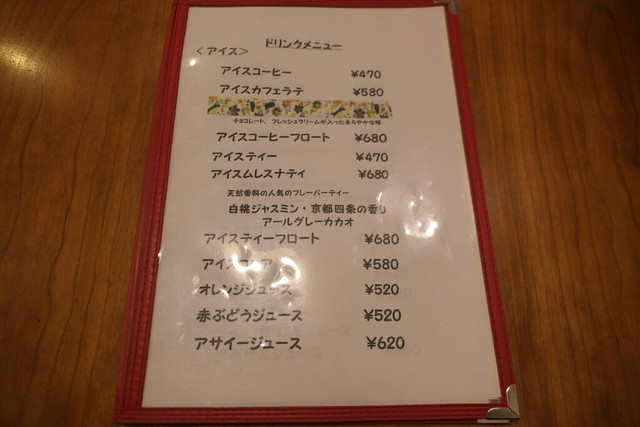 ドリンクメニュー
＜アイス＞
アイスコーヒー ¥470
アイスカフェラテ ¥580
チョコレート、フレッシュクリームが入ったまろやかな味
アイスコーヒーフロート ¥680
アイスティー ¥470
アイスムレスナティ ¥680
天然香料の人気のフレーバーティー
白桃ジャスミン・京都四条の香り
アールグレーカカオ
アイスティーフロート ¥680
アイスココア ¥580
オレンジジュース ¥520
赤ぶどうジュース ¥520
アサイージュース ¥620